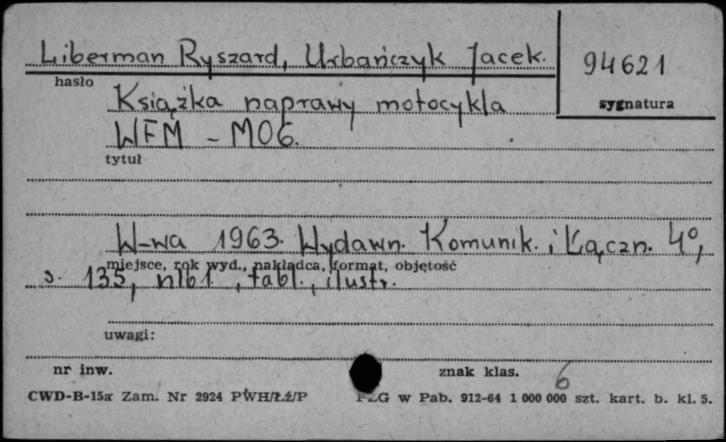 Liberman Ryszard, Urbańczyk Jacek.
94621
hasło
sygnatura
Książka naprawy motocykla
WFM - M06.
tytuł
W-wa 1963. Wydawn. Komunik. i Łączn. 4°,
miejsce, rok wyd., nakładca, format, objętość
s. 135, nlb1, tabl., ilustr.
uwagi:
nr inw.
znak klas.
6
CWD-B-15a Zam. Nr 2924 PWH/Łż/P
PZG w Pab. 912-64 1 000 000 szt. kart. b. kl. 5.